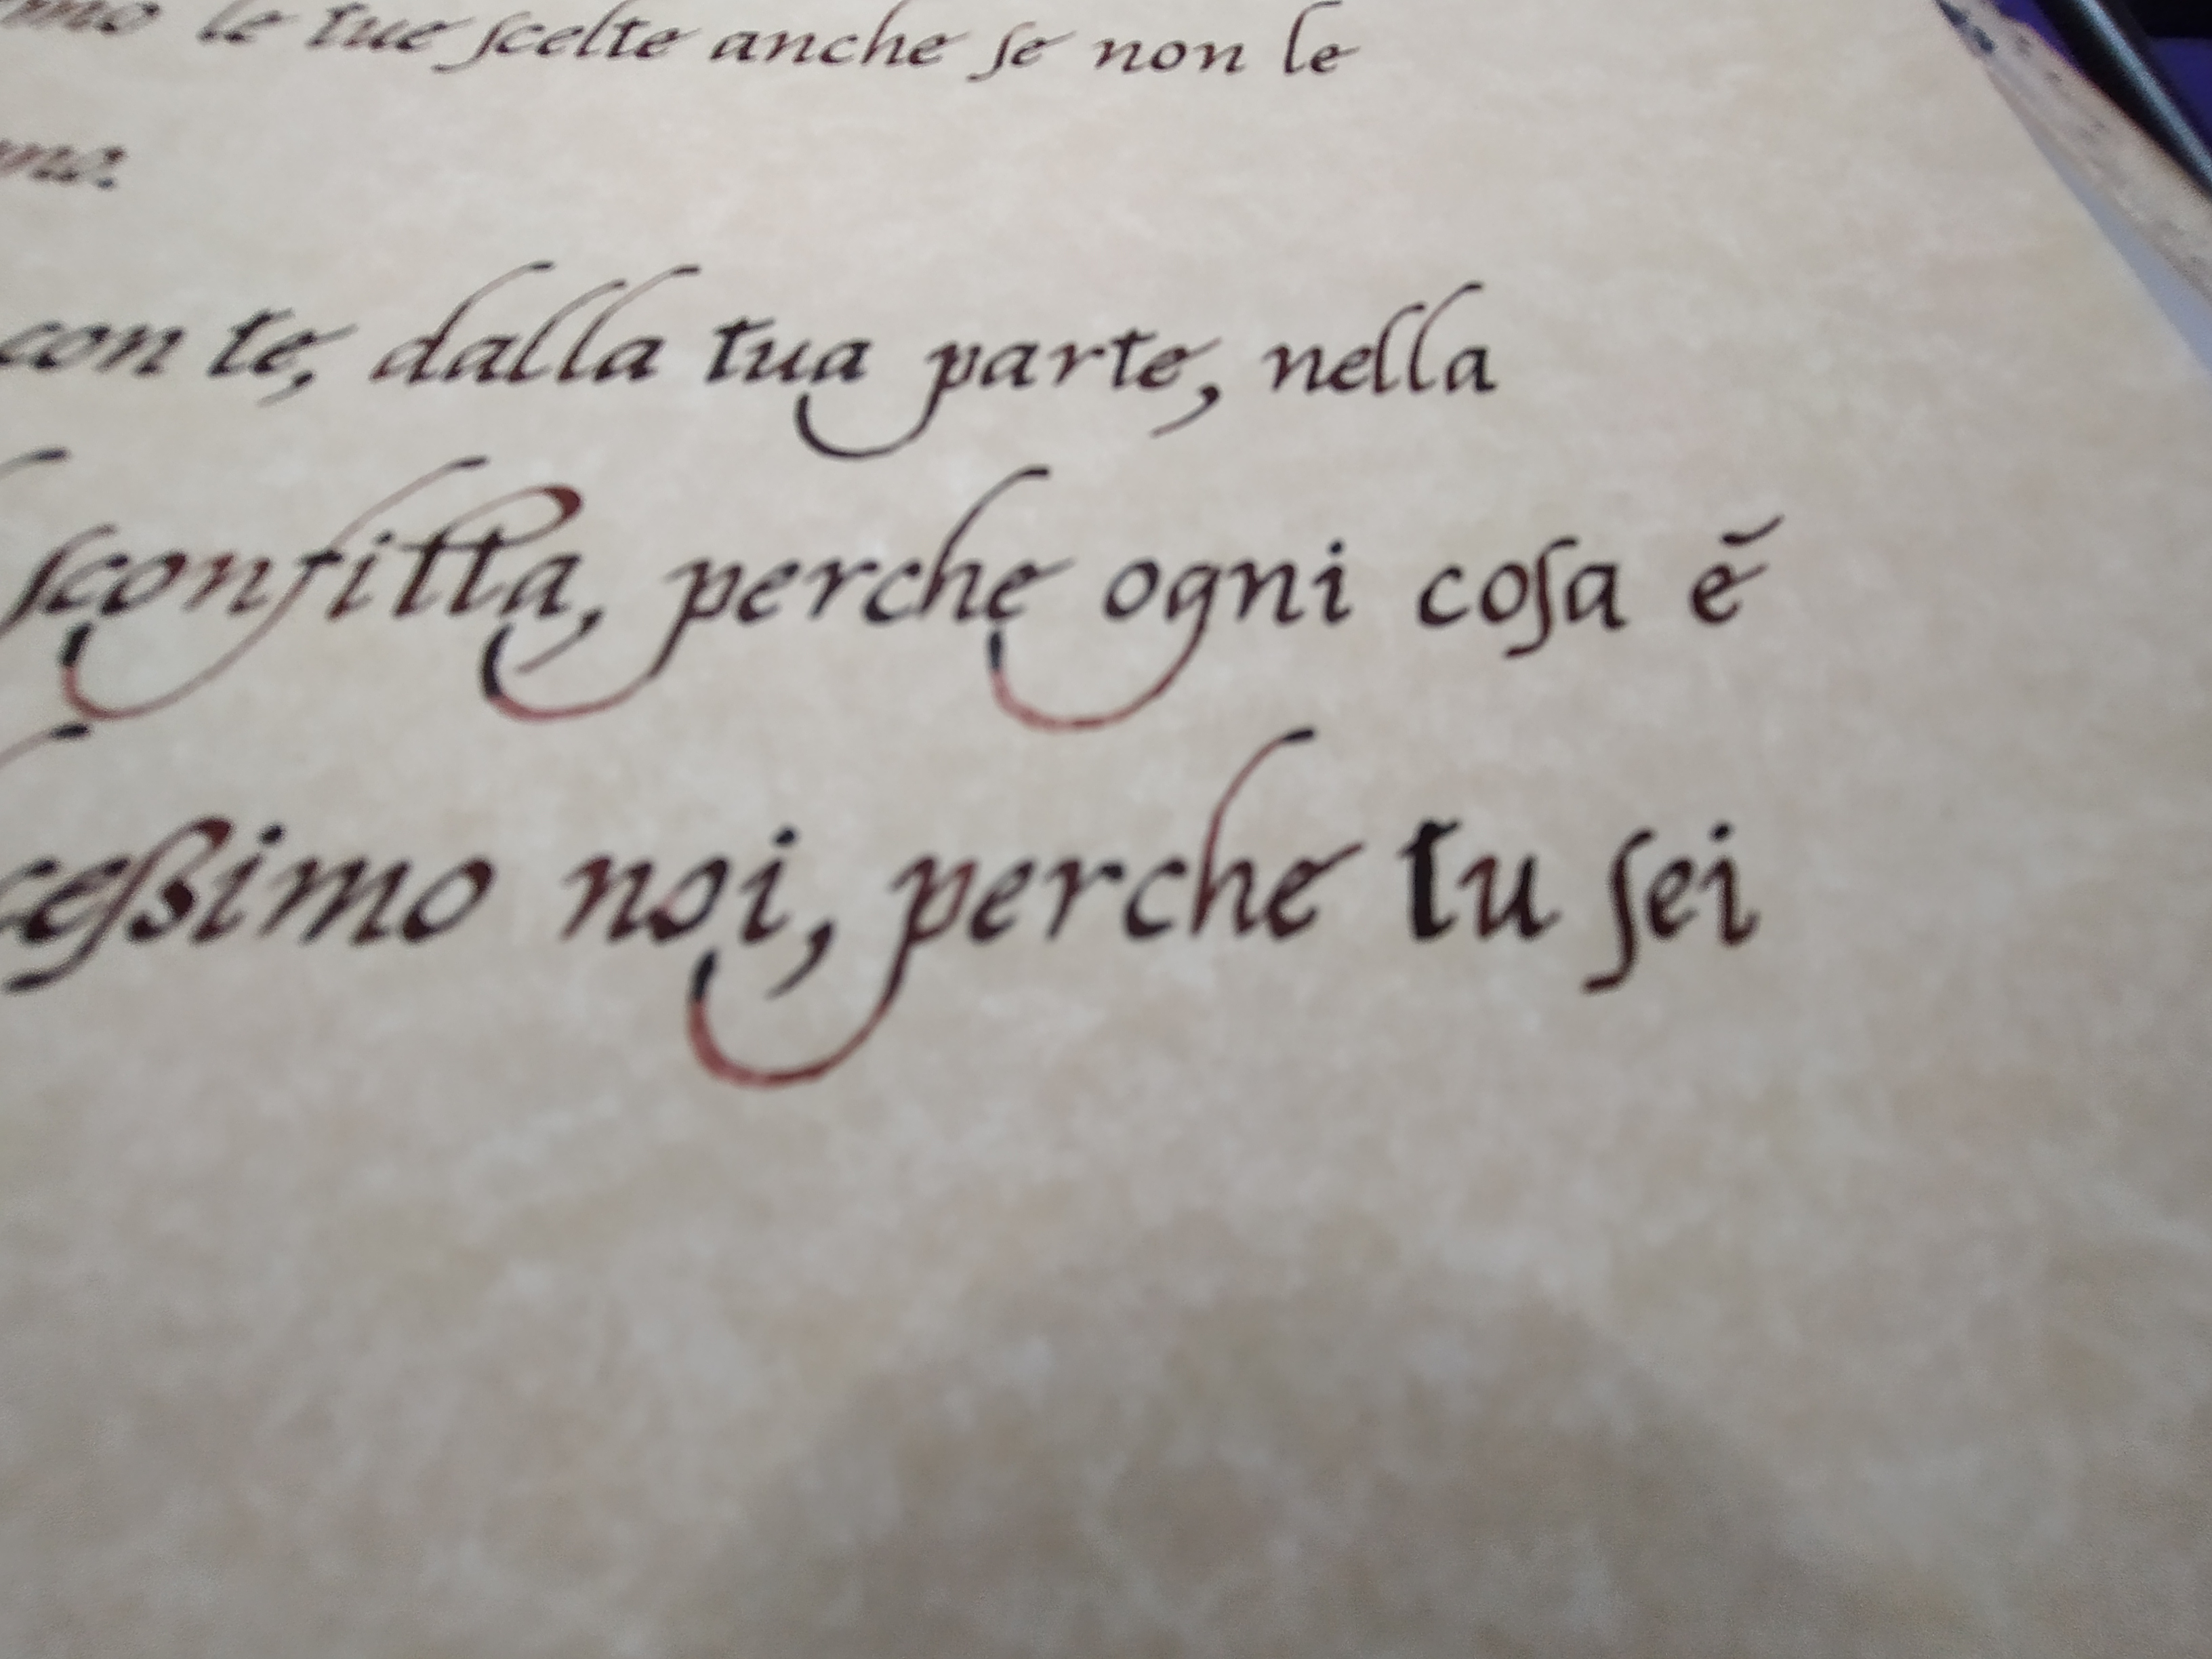 le tue ſcelte anche ſe non le
con te, dalla tua parte, nella
ſconfitta, perche ogni coſa ĕ
ceßimo noi, perche tu ſei